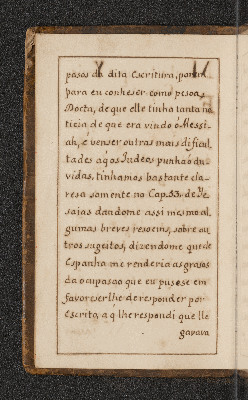 pasos da dita Escritura, porem
para eu conheser como pesoa
Docta, de que elle tinha tanta no
ticia, de que era vindo ô Messi-
ah, é venser outras mais dificul
tades aqos Judeos punhaõ du-
vidas, tinhamos bastante cla-
resa somente no Cap. 53. de Ye
saias dandome assi mesmo al
gumas breves resoems, sobre ou
tros sugestos, dizendome que de
Espanha me renderia as grasas
da ocupasaõ que eu pusese em
favoreserlhe de responder por
escrito, a q̃ lhe respondi que lle
gavava